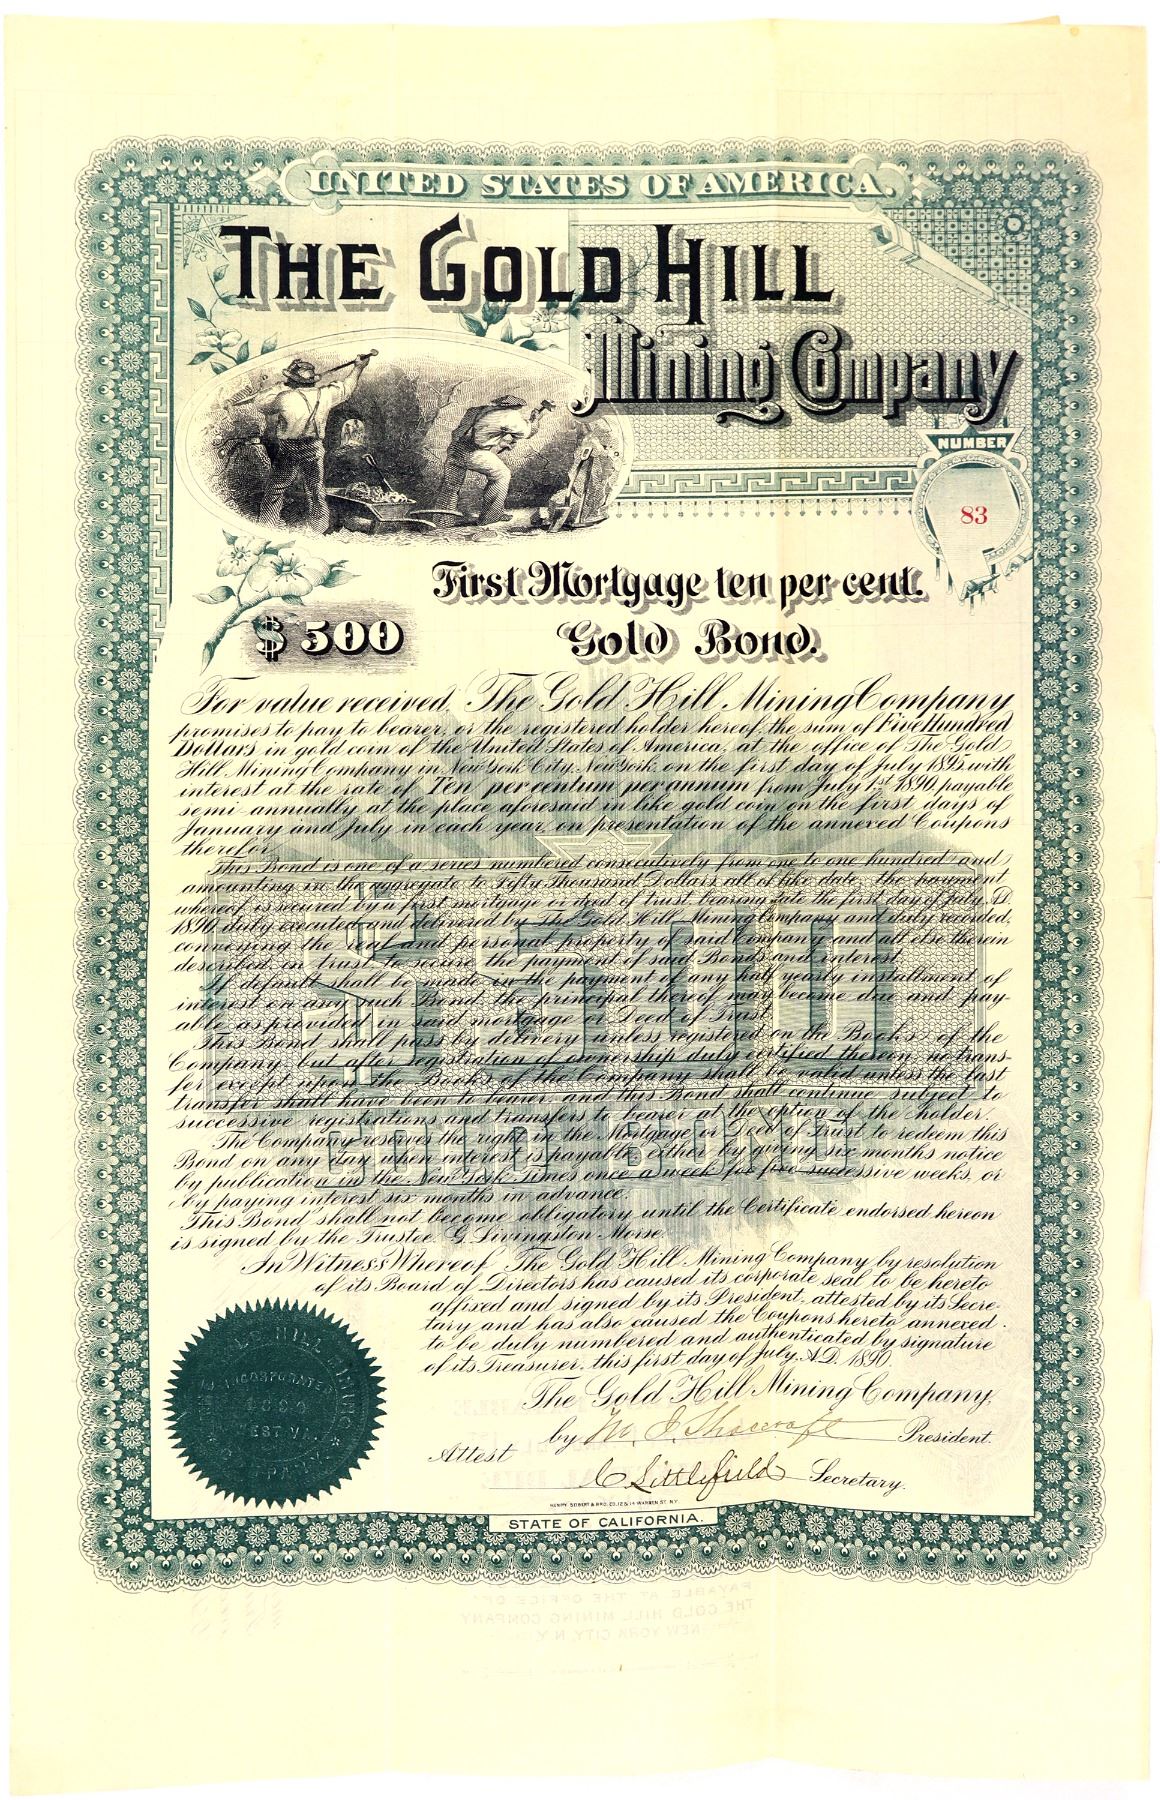 UNITED STATES OF AMERICA.
THE GOLD HILL
Mining Company
NUMBER
83
First Mortgage ten per cent.
$500
Gold Bond.
For value received, The Gold Hill Mining Company
promises to pay to bearer, or the registered holder hereof, the sum of Five Hundred
Dollars in gold coin of the United States of America, at the office of The Gold
Hill Mining Company in New York City, New York, on the first day of July 1895, with
interest at the rate of Ten per centum per annum from July 1st 1890, payable
semi-annually at the place aforesaid in like gold coin on the first days of
January and July in each year, on presentation of the annexed Coupons
therefor.
This Bond is one of a series numbered consecutively from one to one hundred and
amounting in the aggregate to Fifty Thousand Dollars all of like date, the payment
whereof is secured by a first mortgage or deed of trust, bearing date the first day of July, A.D.
1890, duly executed and delivered by The Gold Hill Mining Company and duly recorded,
conveying the real and personal property of said Company and all else therein
described, in trust, to secure the payment of said Bonds and interest.
If default shall be made in the payment of any half yearly installment of
interest on any such Bond, the principal thereof may become due and pay-
able as provided in said mortgage or Deed of Trust.
This Bond shall pass by delivery unless registered on the Books of the
Company, but after registration of ownership duly certified thereon, no trans-
fer except upon the Books of the Company shall be valid unless the last
transfer shall have been to bearer and this Bond shall continue subject to
successive registrations and transfers to bearer at the option of the holder.
The Company reserves the right in the Mortgage or Deed of Trust to redeem this
Bond on any day when interest is payable, either by giving six months notice
by publication in the New York Times once a week for five successive weeks, or
by paying interest six months in advance.
This Bond shall not become obligatory until the Certificate endorsed hereon
is signed by the Trustee, G. Livingston Morse.
$500
GOLD BOND
In Witness Whereof, The Gold Hill Mining Company by resolution
of its Board of Directors has caused its corporate seal to be hereto
affixed and signed by its President, attested by its Secre-
tary and has also caused the Coupons hereto annexed
to be duly numbered and authenticated by signature
of its Treasurer, this first day of July, A.D. 1890.
The Gold Hill Mining Company,
by President.
Attest
C Littlefield Secretary.
HILL MINING
INCORPORATED
WEST VA.
HENRY SEIBERT & BRO. CO. 12 & 14 WARREN ST. N.Y.
STATE OF CALIFORNIA.
PAYABLE AT THE OFFICE OF
THE GOLD HILL MINING COMPANY
NEW YORK CITY, N.Y.